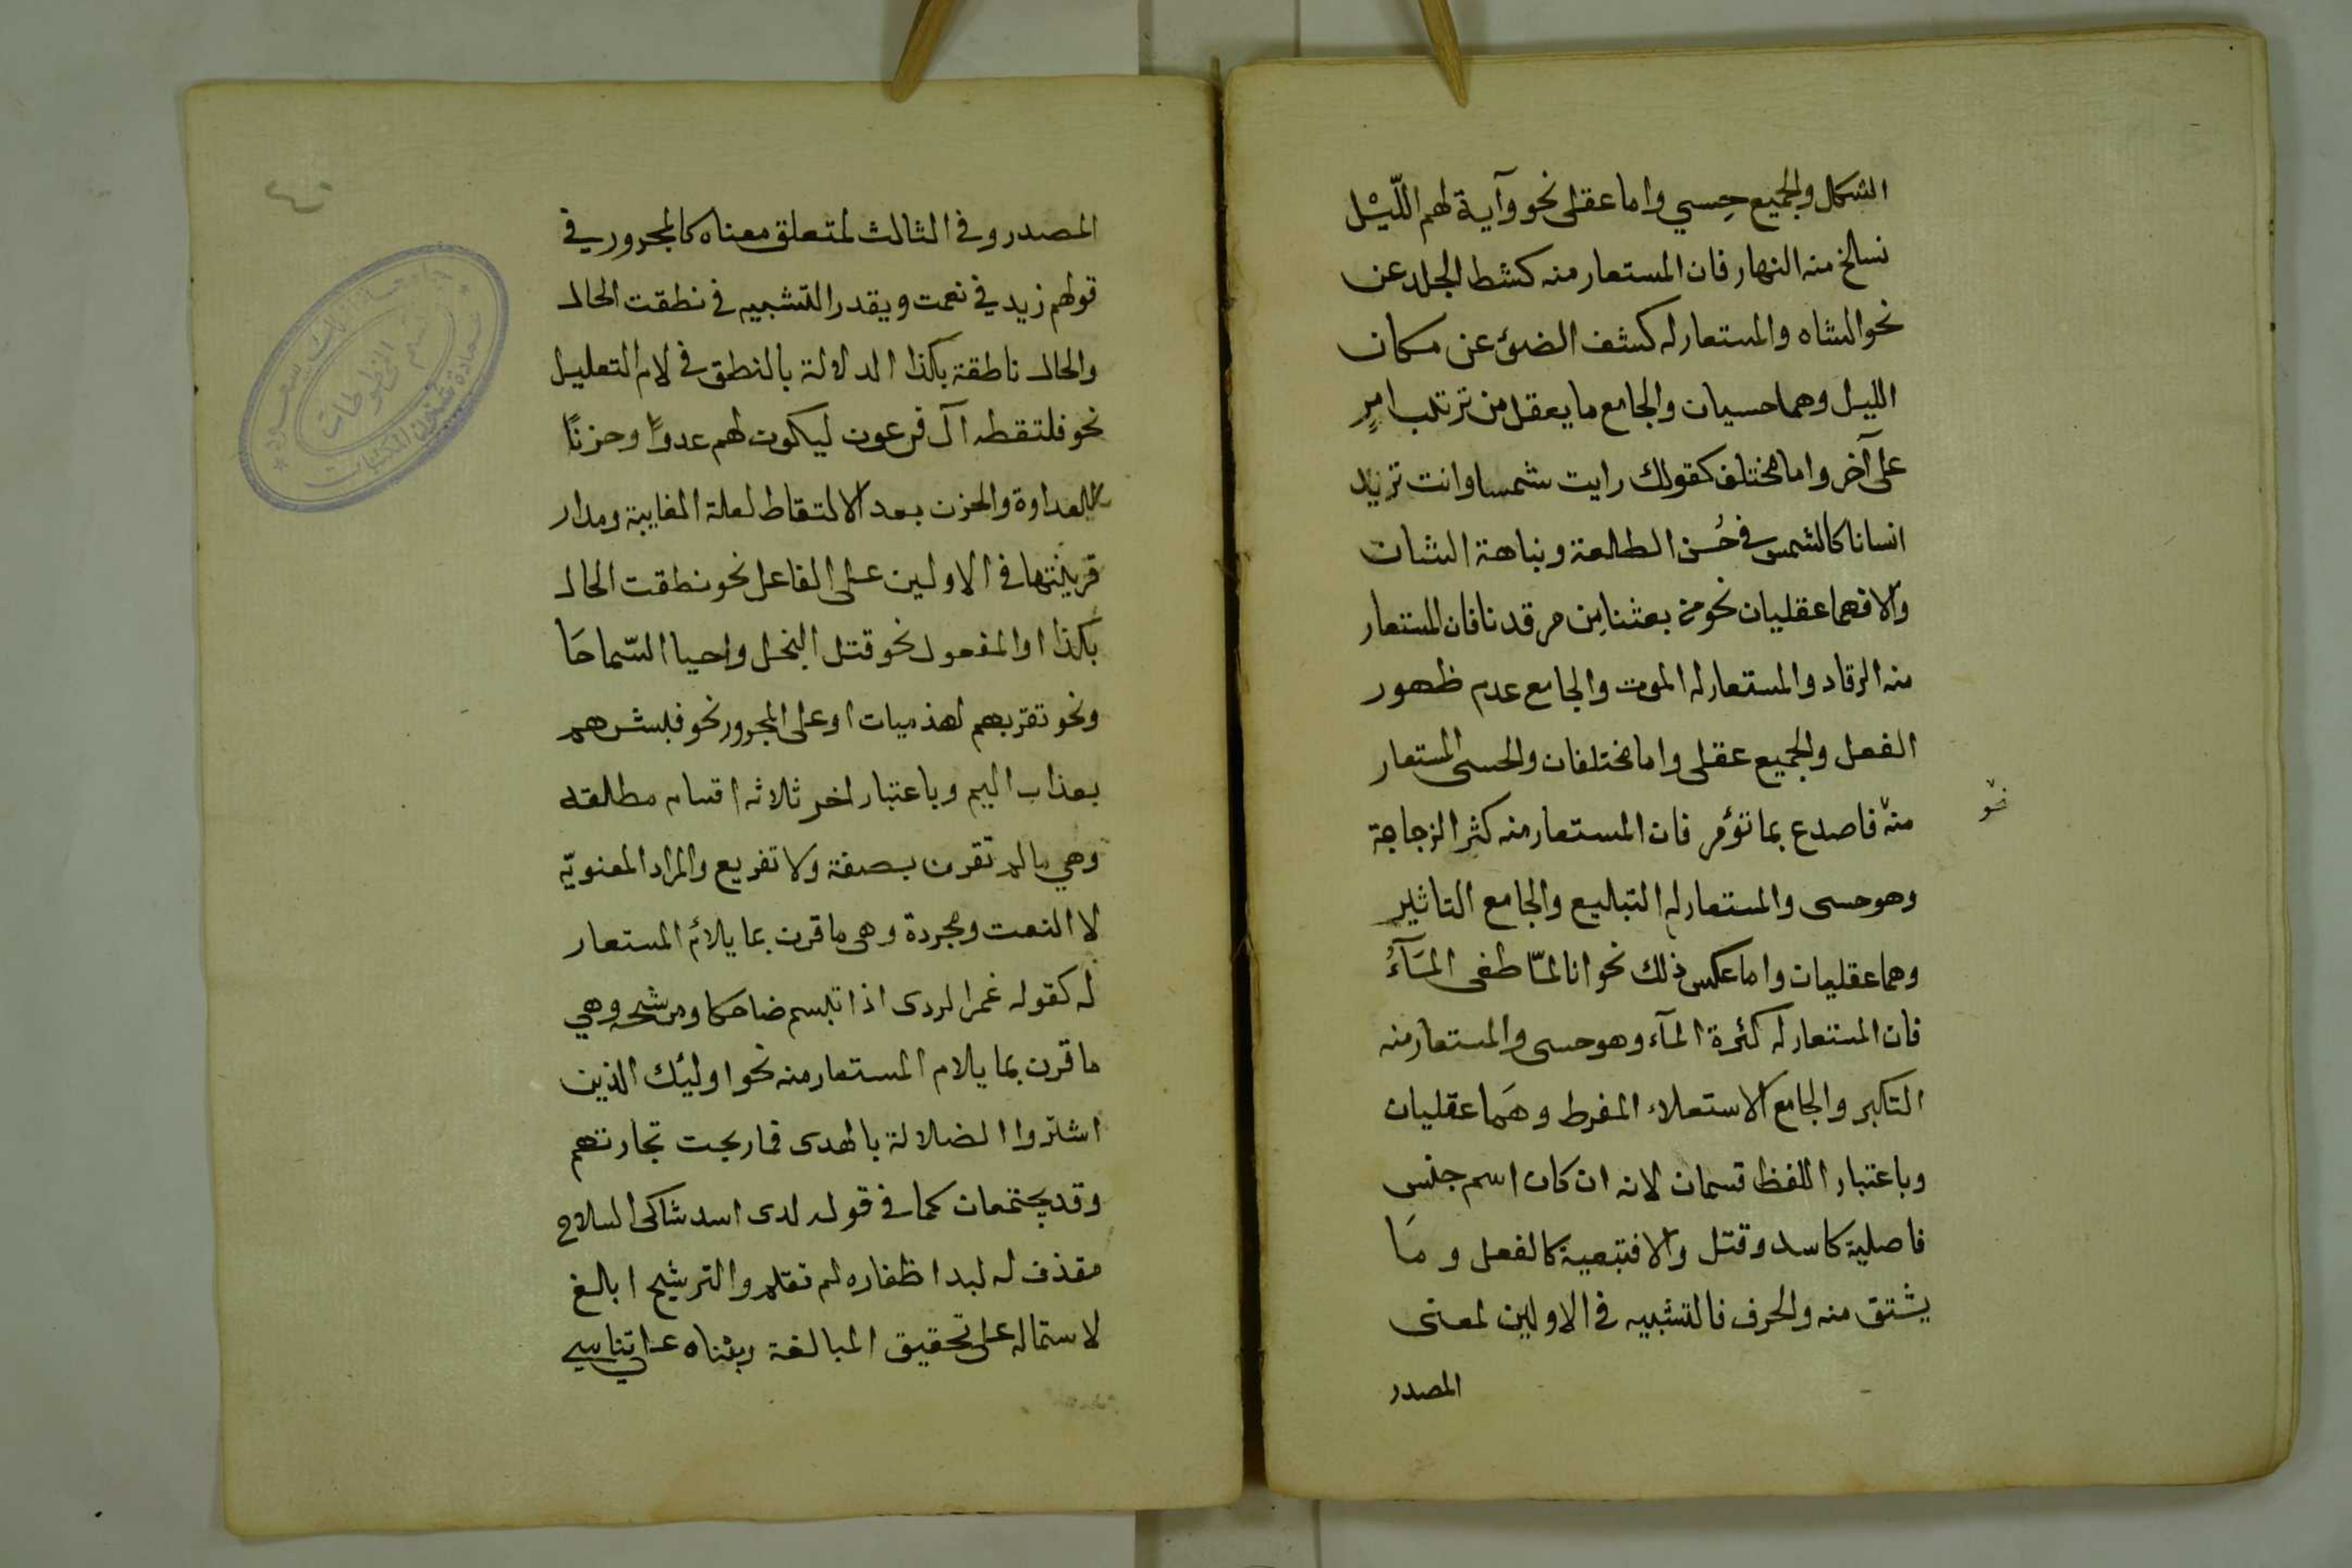 الشكل والجميع حِسي واما عقلى نحو وآية لهم اللّيْل
نسلخ منه النهار فان المستعار منه كشط الجلد عن
نحو الشاه والمستعار له كشف الضوء عن مكان
الليل وهما حسيان والجامع ما يعقل من ترتب امرٍ
على آخر واما مختلف كقولك رايت شمسا وانت تريد
انسانا كالشمس في حُسن الطلعة ونباهة الشان
والا فهما عقليان نحو من بعثنا مِن مرقدنا فان المستعار
منه الرقاد والمستعار له الموت والجامع عدم ظهور
الفعل والجميع عقلى واما مختلفان والحسى المستعار
منه فاصدع بما تؤمر فان المستعار منه كثر الزجاجة
نحو
وهو حسى والمستعار له التبليع والجامع التاثير
وهما عقليان واما عكس ذلك نحو انا لمّا طغى المَآءُ
فان المستعار له كثرة المآء وهو حسى والمستعار منه
التكبر والجامع الاستعلاء المفرط وهَما عقليان
وباعتبار اللفظ قسمان لانه ان كان اسم جنس
فاصلية كاسد وقتل والا فتبعية كالفعل و مَا
يشتق منه والحرف فالتشبيه في الاولين لمعنى
المصدر
٤٠
المصدر وفي الثالث لمتعلق معناه كالمجرور في
قولهم زيد في نعمت ويقدر التشبيه في نطقت الحال
والحال ناطقة بكذا الدلالة بالنطق في لام التعليل
نحو فلتقطه آل فرعون ليكون لهم عدوًا وحزنًا
للعداوة والحزن بعد الالتقاط لعلة الغايية ومدار
قرينتها في الاولين على الفاعل نحو نطقت الحال
بكذا او المفعول نحو قتل البخل واحيا السّماحَا
ونحو تقريهم لهذميات او على المجرور نحو فبشرهم
بعذاب اليم وباعتبار اخر ثلاثه اقسام مطلقه
وهي ما لم تقرن بصفة ولا تفريع والمراد المعنويّه
لا النعت ومجردة وهى ما قرن بما يلائم المستعار
له كقوله غمر الردى اذا تبسم ضاحكا ومرشحه وهي
ما قرن بما يلام المستعار منه نحو اولئك الذين
اشتروا الضلالة بالهدى فما ربحت تجارتهم
وقد يجتمعان كما في قوله لدى اسد شاكى السلاح
مقذف له لبد اظفاره لم تقلم والترشيح ابالغ
لاستماله على تحقيق المبالغة وبناه على تناسي
جامعة الملك سعود
قسم المخطوطات
عمادة شئون المكتبات